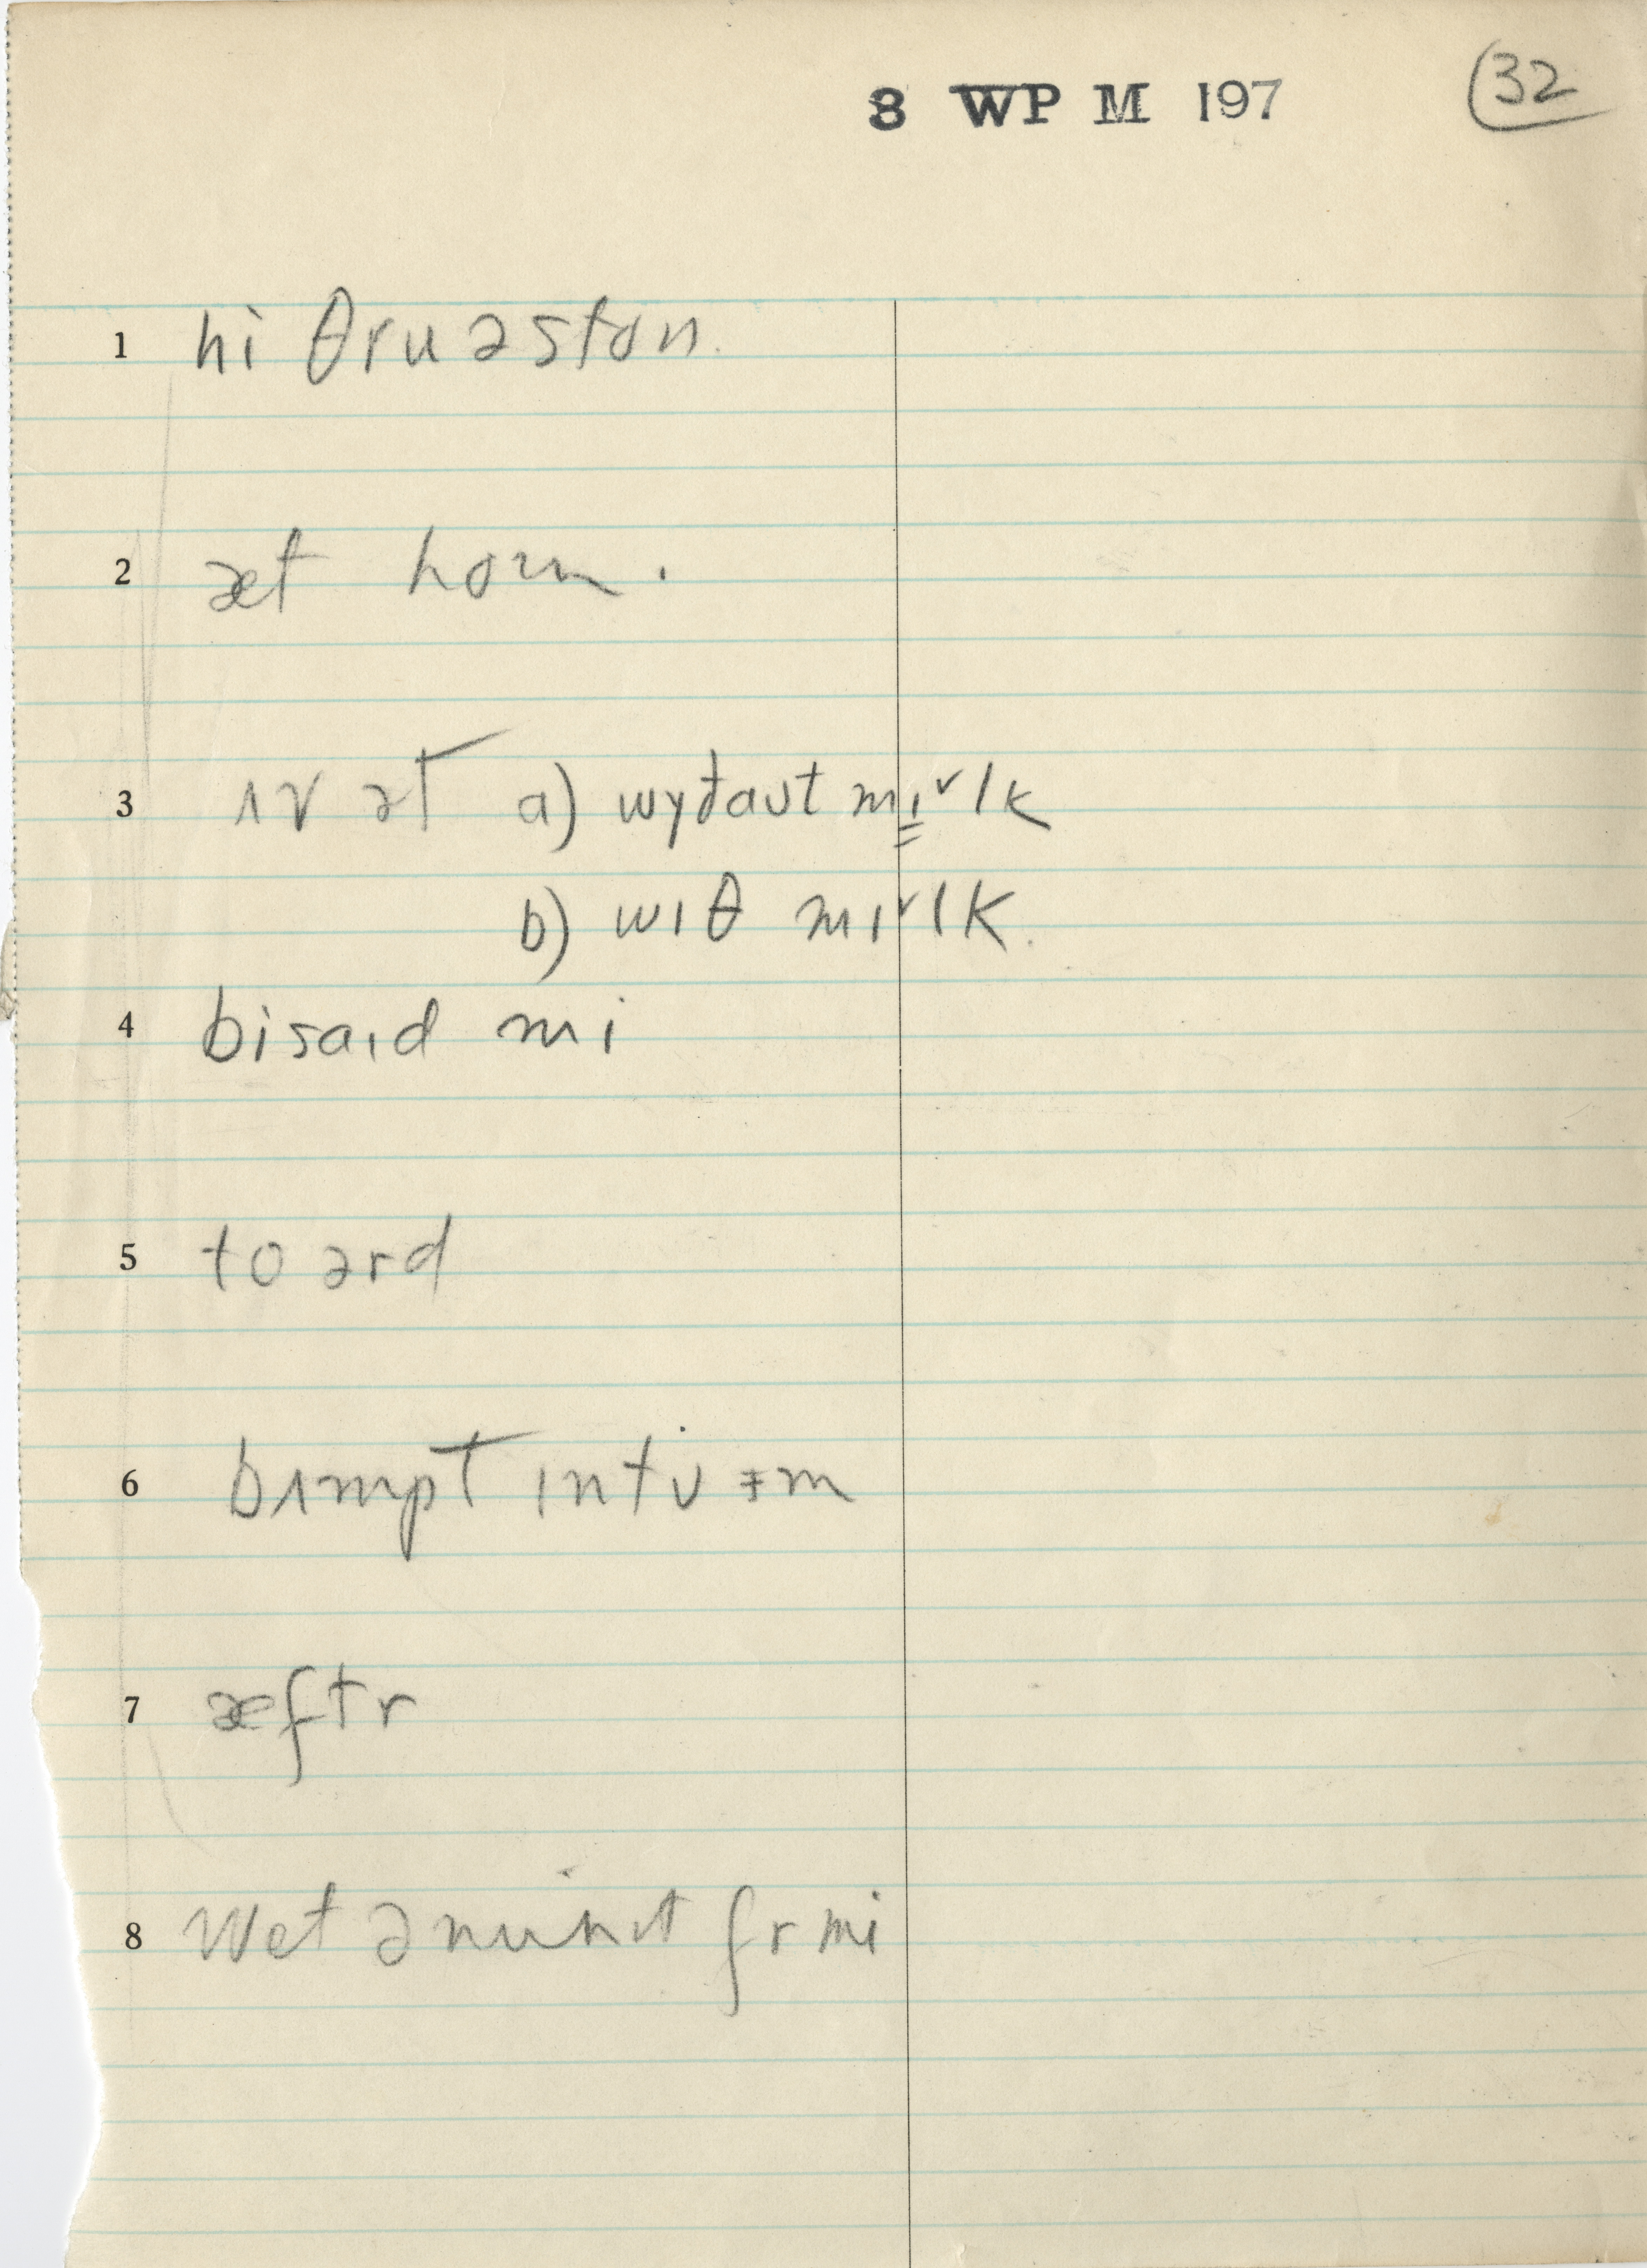 8 WP M 197 32
1 hi θru ə ston.
2 æt hom.
3 ʌv ət a) wɪðaʊt mɪᵛlk
b) wɪθ mɪᵛlk.
4 bisaɪd mi
5 toərd
6 bʌmpt ɪntu ɨm
7 æftr
8 wet ə mɪnɪt fr mi